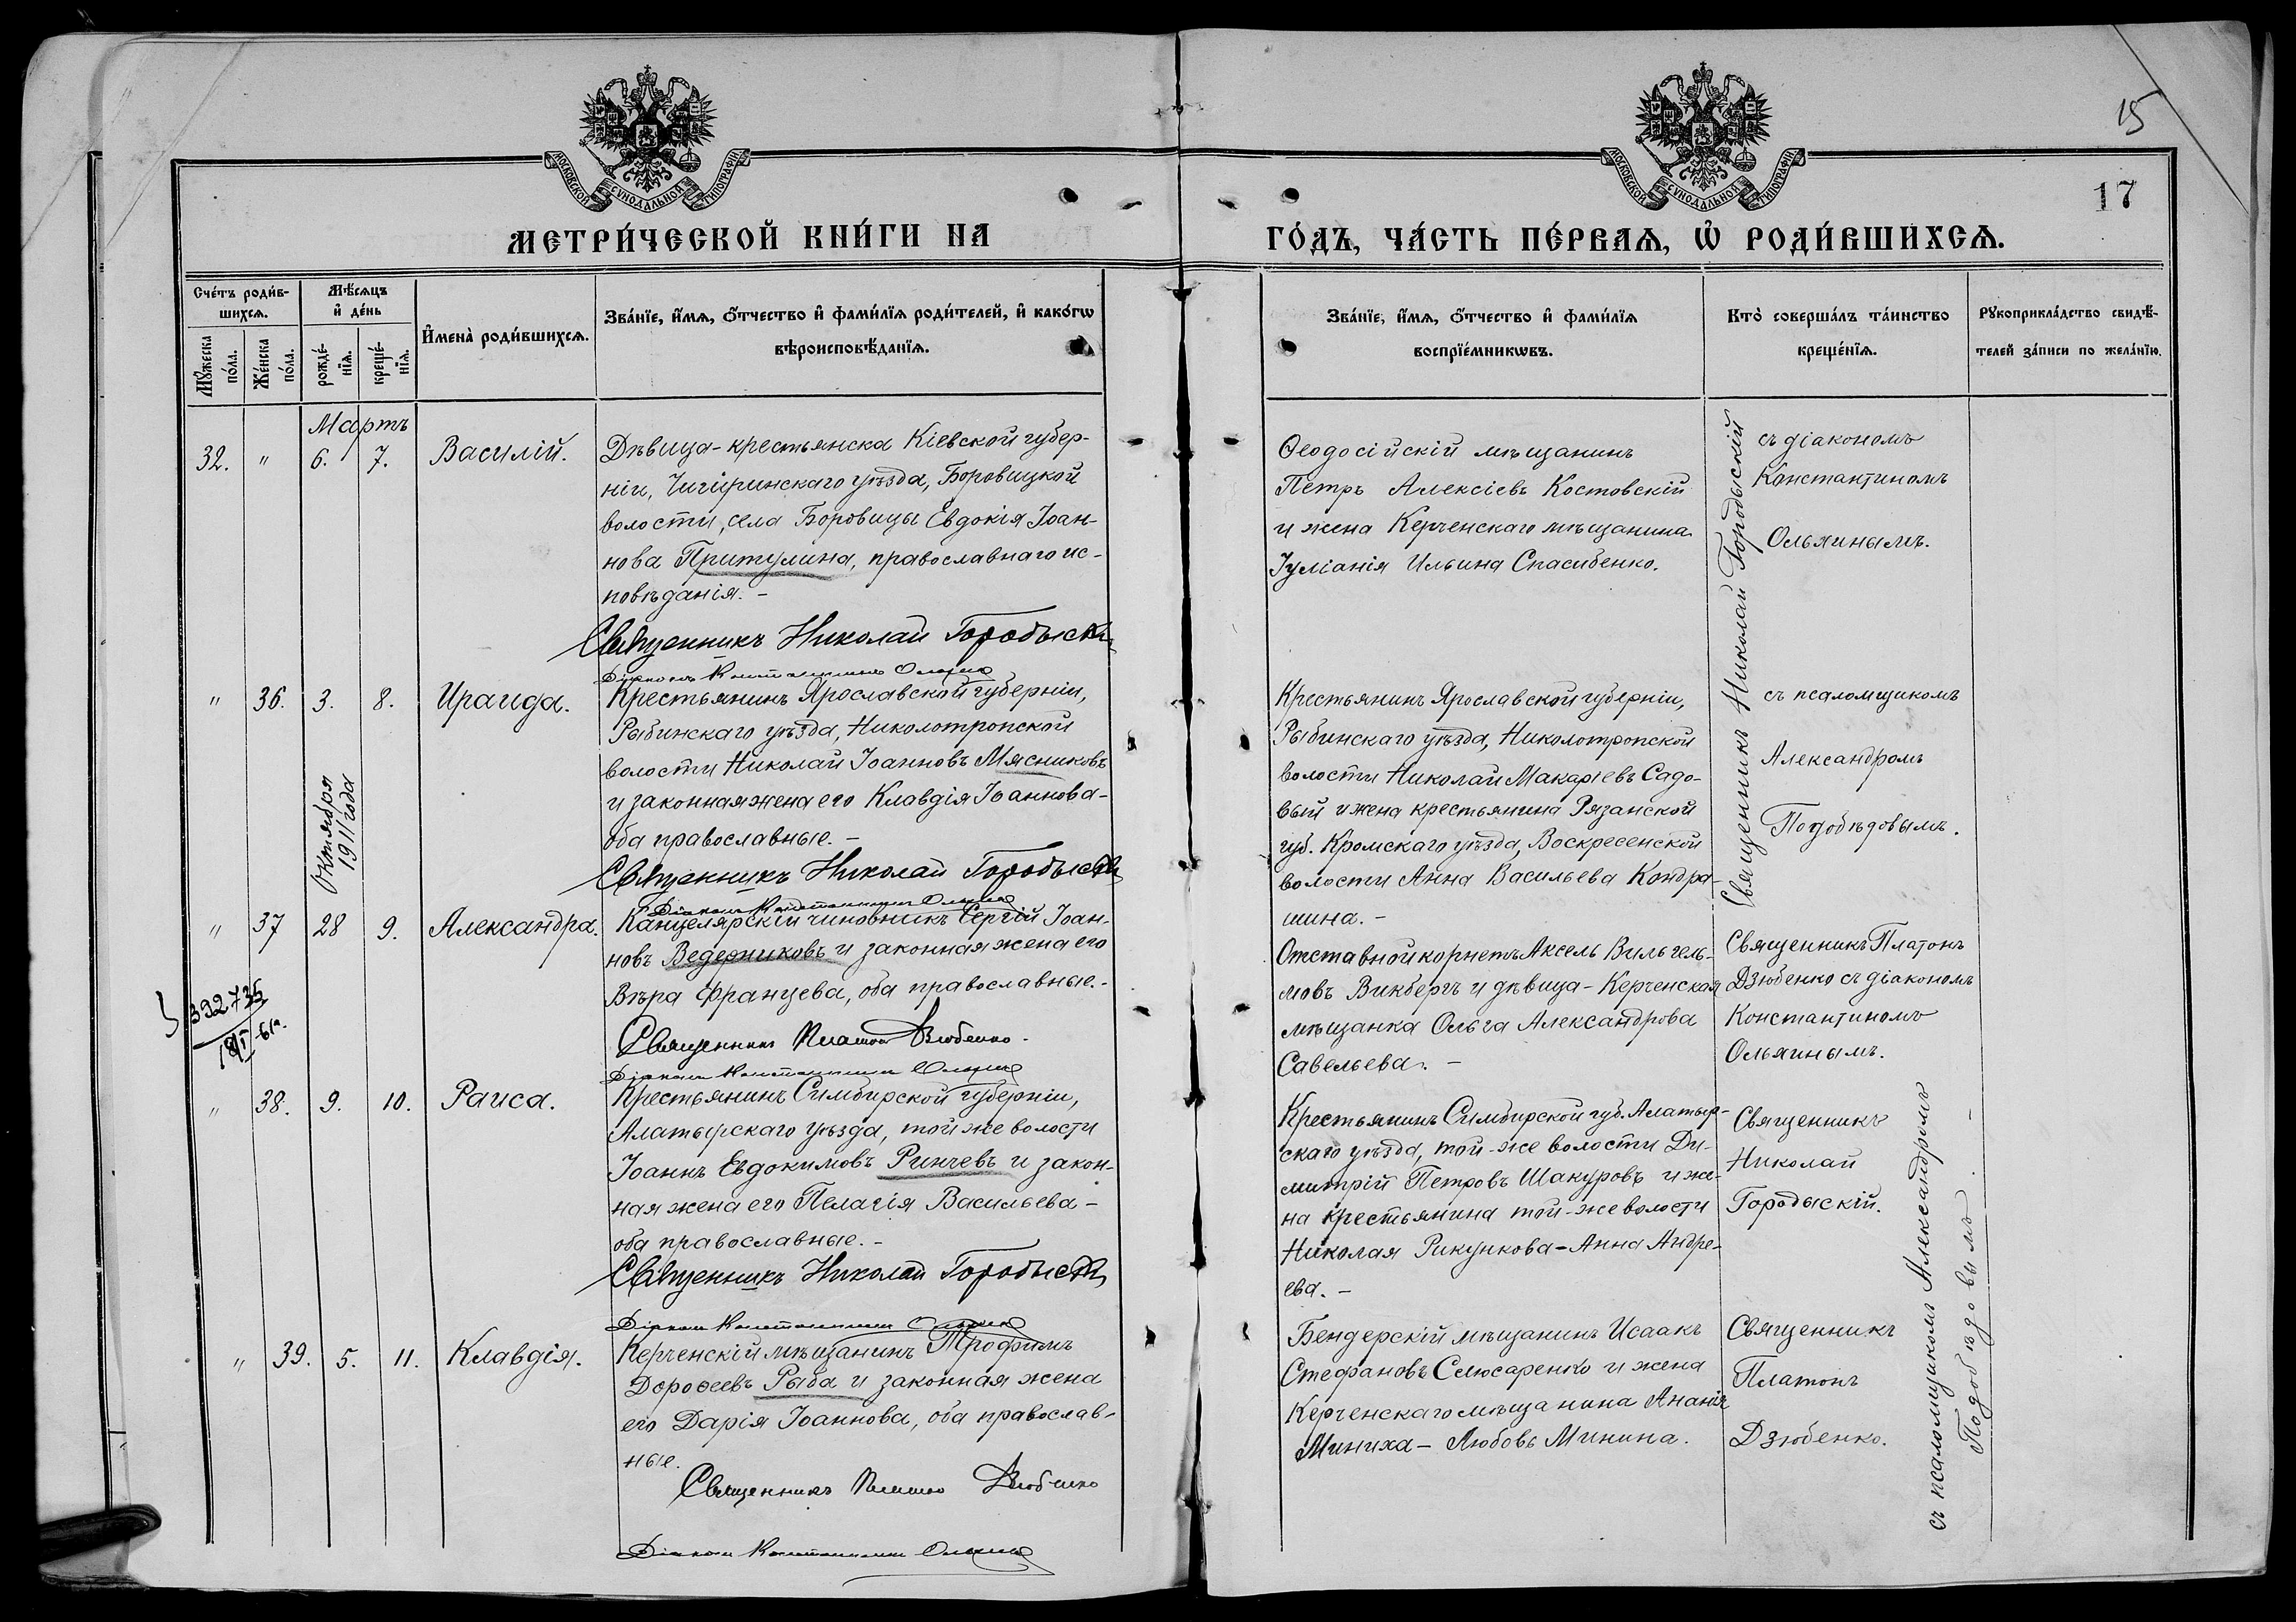 15
17
МОСКОВСКОЙ СѴНОДАЛЬНОЙ ТИПОГРАФІИ
МОСКОВСКОЙ СѴНОДАЛЬНОЙ ТИПОГРАФІИ
МЕТРИ́ЧЕСКОЙ КНИ́ГИ НА
ГО́ДЪ, ЧА́СТЬ ПЕ́РВАЯ, Ѡ҆ РОДИ́ВШИХСЯ.
Сче́тъ роди́в-
шихся.
Мꙋ́жеска
по́ла.
Же́нска
по́ла.
Мѣ́сяцъ
и҆ де́нь
рожде́-
нїя.
креще́-
нїя.
И҆мена̀ роди́вшихся.
Зва́нїе, и҆́мя, ѻ҆́тчество и҆ фами́лїя роди́телей, и҆ како́гѡ
вѣроисповѣ́данїя.
Зва́нїе, и҆́мя, ѻ҆́тчество и҆ фами́лїя
воспрїе́мникѡвъ.
Кто̀ соверша́лъ та́инство
креще́нїя.
Рꙋкоприкла́дство свидѣ́-
телей за́писи по жела́нїю.
Мартъ
32. " 6. 7. Василій.
Дѣвица-крестьянска Кіевской губер-
ніи, Чигиринскаго уѣзда, Боровицкой
волости, села Боровицы Евдокія Іоан-
нова Притулина, православнаго ис-
повѣданія. -
Священникъ Николай Городыскій
Діаконъ Константинъ Ольхинъ
Ѳеодосійскій мѣщанинъ
Петръ Алексіевъ Костовскій
и жена Керченскаго мѣщанина
Іуліанія Ильина Спасибенко.
Священникъ Николай Городыскій
съ діакономъ
Константиномъ
Ольхинымъ.
" 36. 3. 8. Ираида.
Октября
1911 года
Крестьянинъ Ярославской губерніи,
Рыбинскаго уѣзда, Николотропской
волости Николай Іоанновъ Мясниковъ
и законная жена его Клавдія Іоаннова-
оба православные. -
Священникъ Николай Городыскій
Діаконъ Константинъ Ольхинъ
Крестьянинъ Ярославской губерніи,
Рыбинскаго уѣзда, Николотропской
волости Николай Макаріевъ Садо-
вый и жена крестьянина Рязанской
губ. Кромскаго уѣзда, Воскресенской
волости Анна Васильева Кондра-
шина. -
съ псаломщикомъ
Александромъ
Подобѣдовымъ.
" 37 28 9. Александра.
392735
18/I-61г.
Канцелярскій чиновникъ Сергій Іоан-
новъ Ведерниковъ и законная жена его
Вѣра Францева, оба православные. -
Священникъ Платонъ Дзюбенко.
Діаконъ Константинъ Ольхинъ
Отставной корнетъ Аксель Вильгель-
мовъ Викбергъ и дѣвица - Керченская
мѣщанка Ольга Александрова
Савельева. -
Священникъ Платонъ
Дзюбенко съ діакономъ
Константиномъ
Ольхинымъ.
" 38. 9. 10. Раиса.
Крестьянинъ Симбирской губерніи,
Алатырскаго уѣзда, той же волости
Іоаннъ Евдокимовъ Ринчевъ и закон-
ная жена его Пелагія Васильева -
оба православные. -
Священникъ Николай Городыскій
Діаконъ Константинъ Ольхинъ
Крестьянинъ Симбирской губ. Алатыр-
скаго уѣзда, той-же волости Ди-
митрій Петровъ Шакуровъ и же-
на крестьянина той-же волости
Николая Рикункова - Анна Андре-
ева. -
Священникъ
Николай
Городыскій.
съ псаломщикомъ Александромъ
Подобѣдовымъ. -
" 39. 5. 11. Клавдія.
Керченскій мѣщанинъ Трофимъ
Дороѳеевъ Рыба и законная жена
его Дарія Іоаннова, оба православ-
ные.
Священникъ Платонъ Дзюбенко
Діаконъ Константинъ Ольхинъ
Бендерскій мѣщанинъ Исаакъ
Стефановъ Слюсаренко и жена
Керченскаго мѣщанина Ананія
Миниха - Любовь Минина.
Священникъ
Платонъ
Дзюбенко.